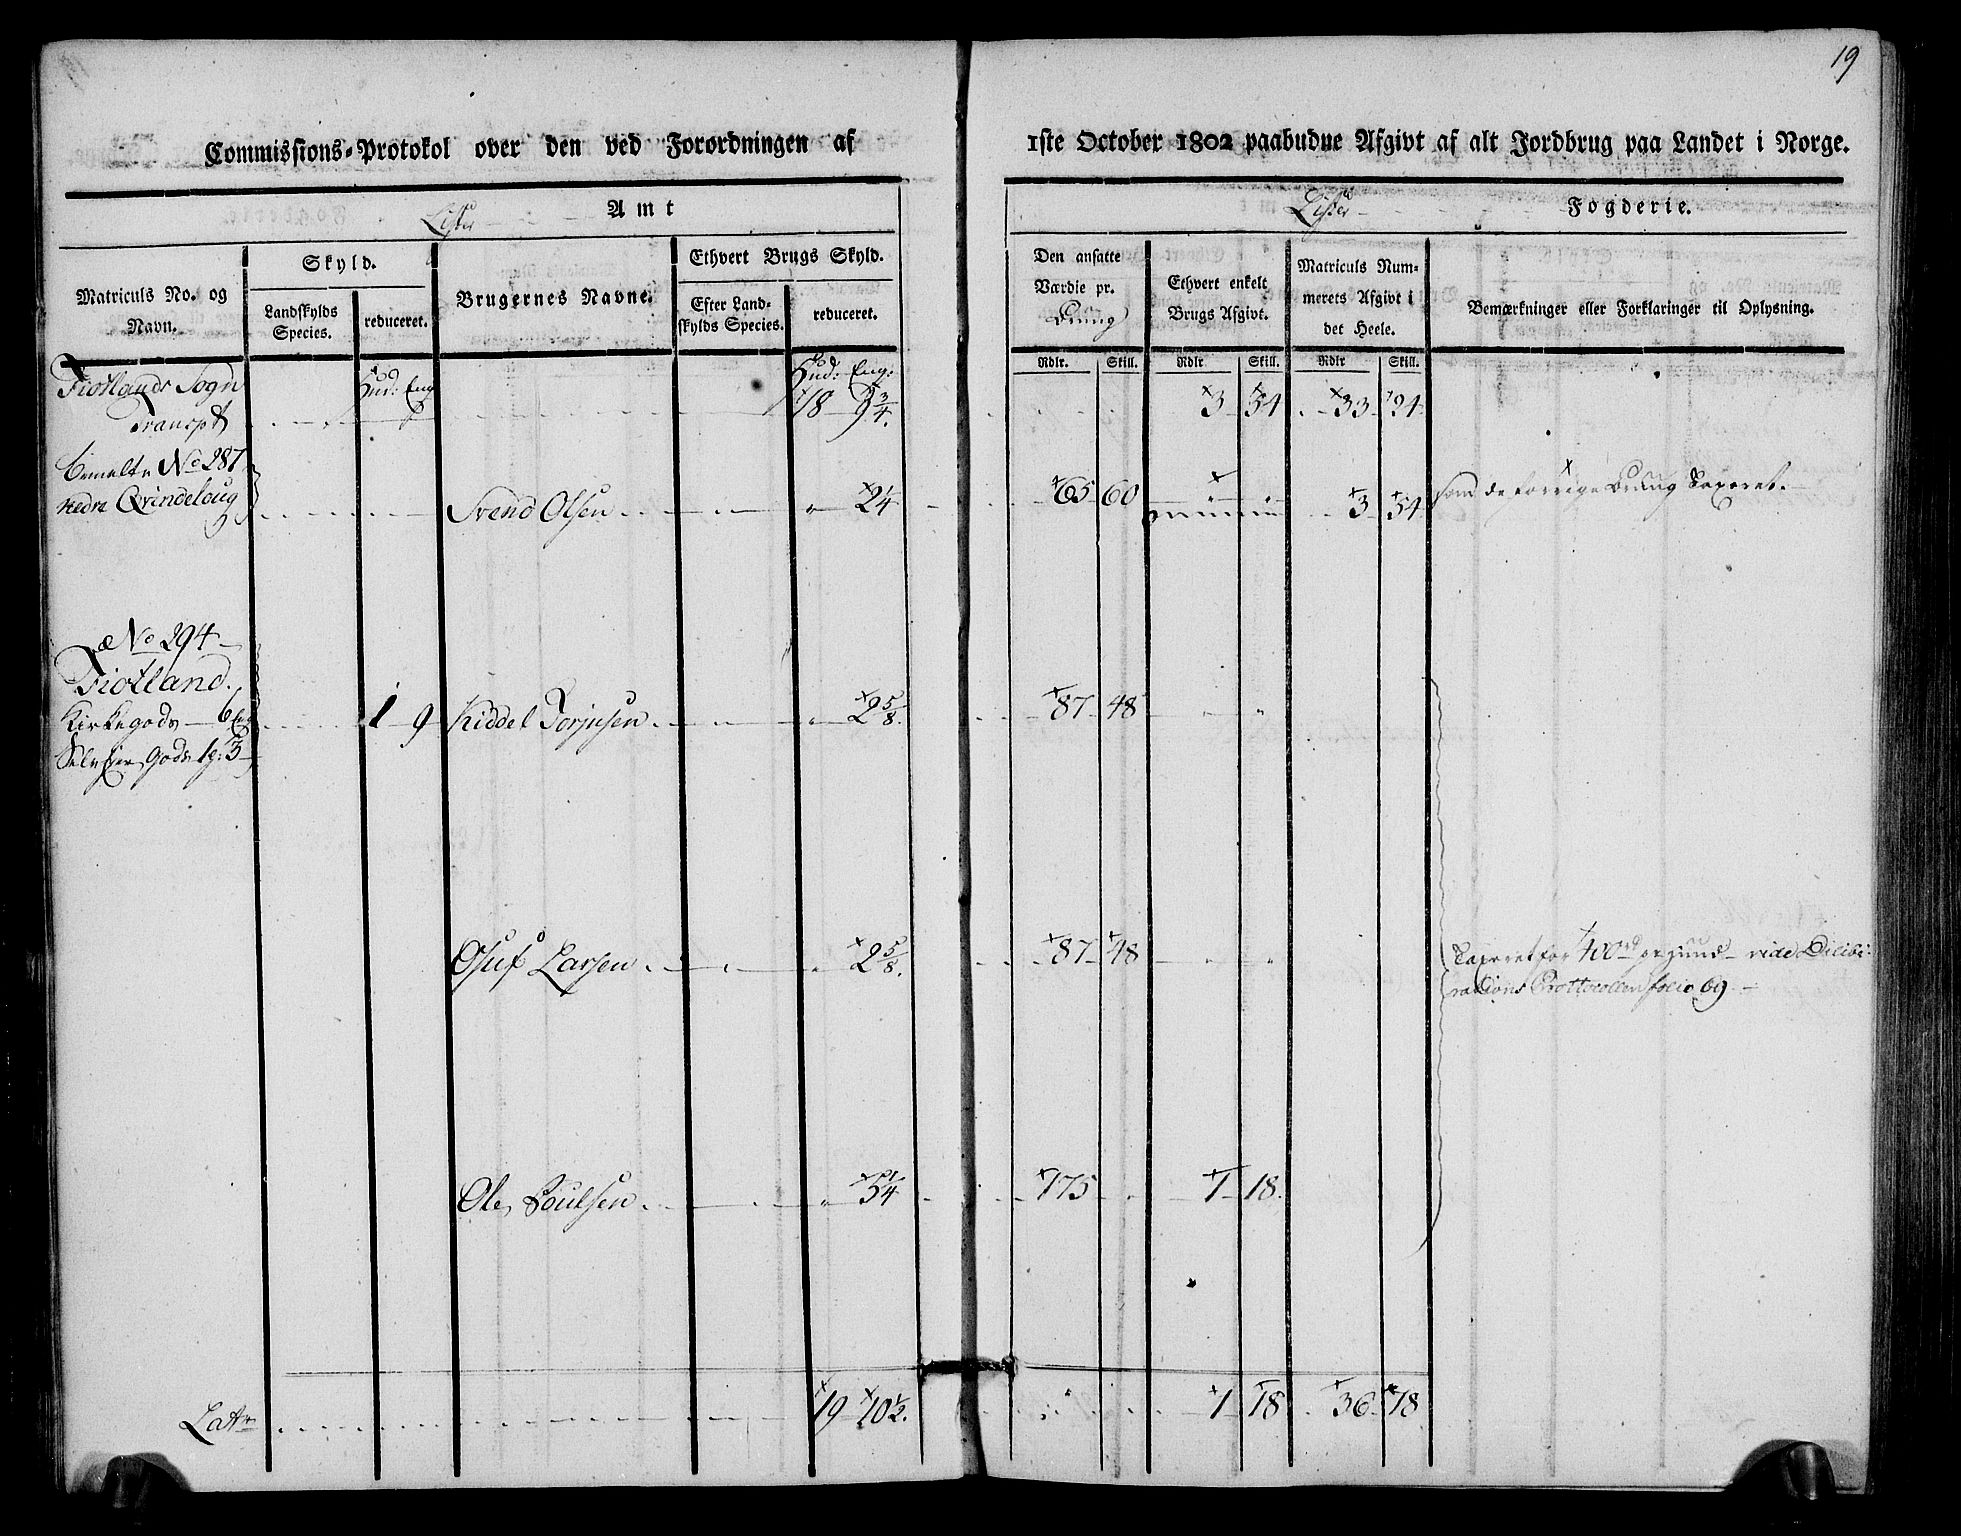 19
Commissions-Protokol over den ved Forordningen af 1ste October 1802 paabudne Afgivt af alt Jordbrug paa Landet i Norge.
Lister Amt
Lister Fogderie.
Matriculs No. og Navn.
Skyld.
Landskylds Species.
reduceret.
Brugernes Navne.
Ethvert Brugs Skyld.
Efter Landskylds Species.
reduceret.
Den ansatte Værdie pr. Bruug
Ethvert enkelt Brugs Afgivt.
Matriculs Nummerets Afgivt i det Heele.
Bemærkninger eller Forklaringer til Oplysning.
Rdlr. Skill. Rdlr Skill. Rdlr Skill.
Fiotlands Sogn Hud: Eng Hud: Eng:
Transpt 18 9 3/4. 3 54 33 24
No 287
nedre Qvindeloug Svend Olsen 2 1/4 65 60 3 54 som de forrige Bruug Taxeret.
No 294
Fiotland.
Kirkegods 6 Eng 1 9 Kiddel Torjusen 2 5/8. 87 48
Selveier Gods 1 g: 3
Oluf Larsen 2 5/8. 87 48 Taxeret for 400rd vide Delibe:
rations Prottocollen folio 69
Ole Poulsen 5 1/4 175 1 18.
Latr 19 10 1/2. 1 18 36 78